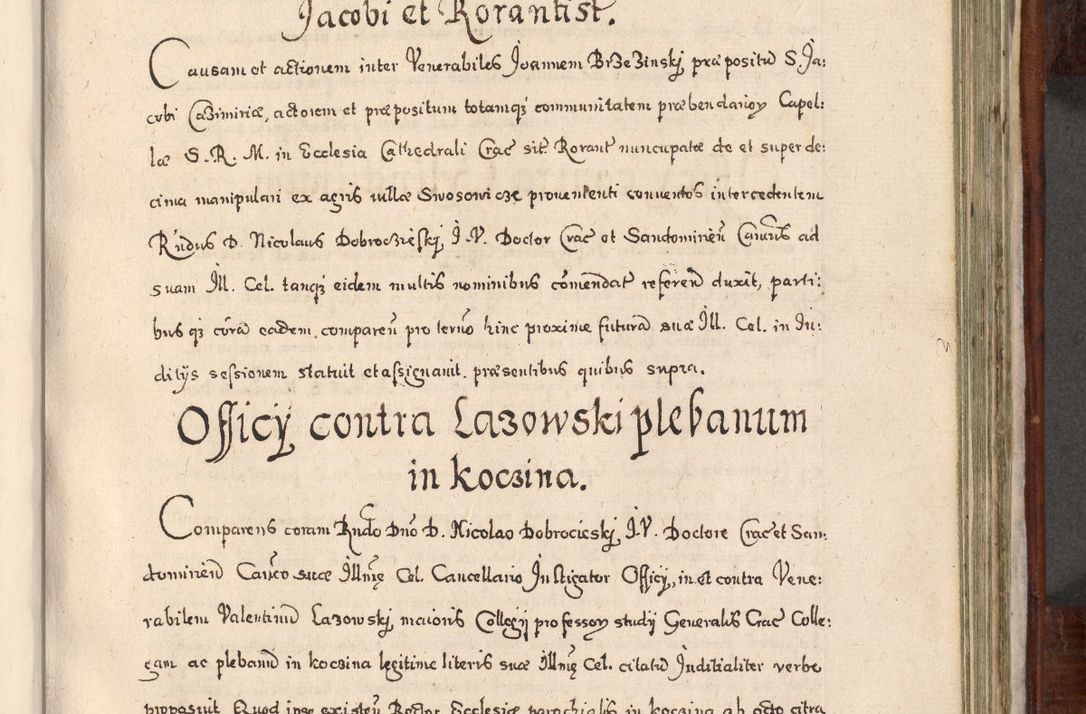 Jacobi et Rorantist.
Causam et actionem inter Venerabiles Joannem Brzezinskj præpositũ S. Ja:
cobi Cazimiriæ, actorem et præpositum totamqz communitatem præbendarioȝ Capel:
læ S. R. M. in Ecclesia Cathedrali Crac sit. Rorant nuncupatæ de et super de:
cima manipulari ex agris villæ Swosowicze prouenienti conuentos intercedentem
Rńdus D. Nicolaus Dobrocziеskj, J. V. Doctor Crac et Sandomirień Canǔs ad
suam Ill. Cel. tanqz eidem multis nominibus cõmendat referend duxit, parti:
bus qz corã eadem comparen pro termo hinc proxime futurã suæ Ill. Cel. in Ju:
ditijs sessionem statuit et assignauit. præsentibus quibus supra.
Officij contra Lazowski plebanum
in koczina.
Comparens coram Rndo Dno D. Nicolao Dobrocieskj, J. V. Doctore Crac et San:
domirień Canco suæ Illmę Cel. Cancellario Instigator Officij, in et contra Vene:
rabilem Valentinũ Lazowskj, maioris Collegij professoȝ studij Generalis Crac Colle:
gam ac plebanũ in koczina legitime literis suæ Illmę Cel. citatũ Juditialiter verbo
proposuit Quod ipse existeń Rector Ecclesiæ parochialis in koczina ab octo citra